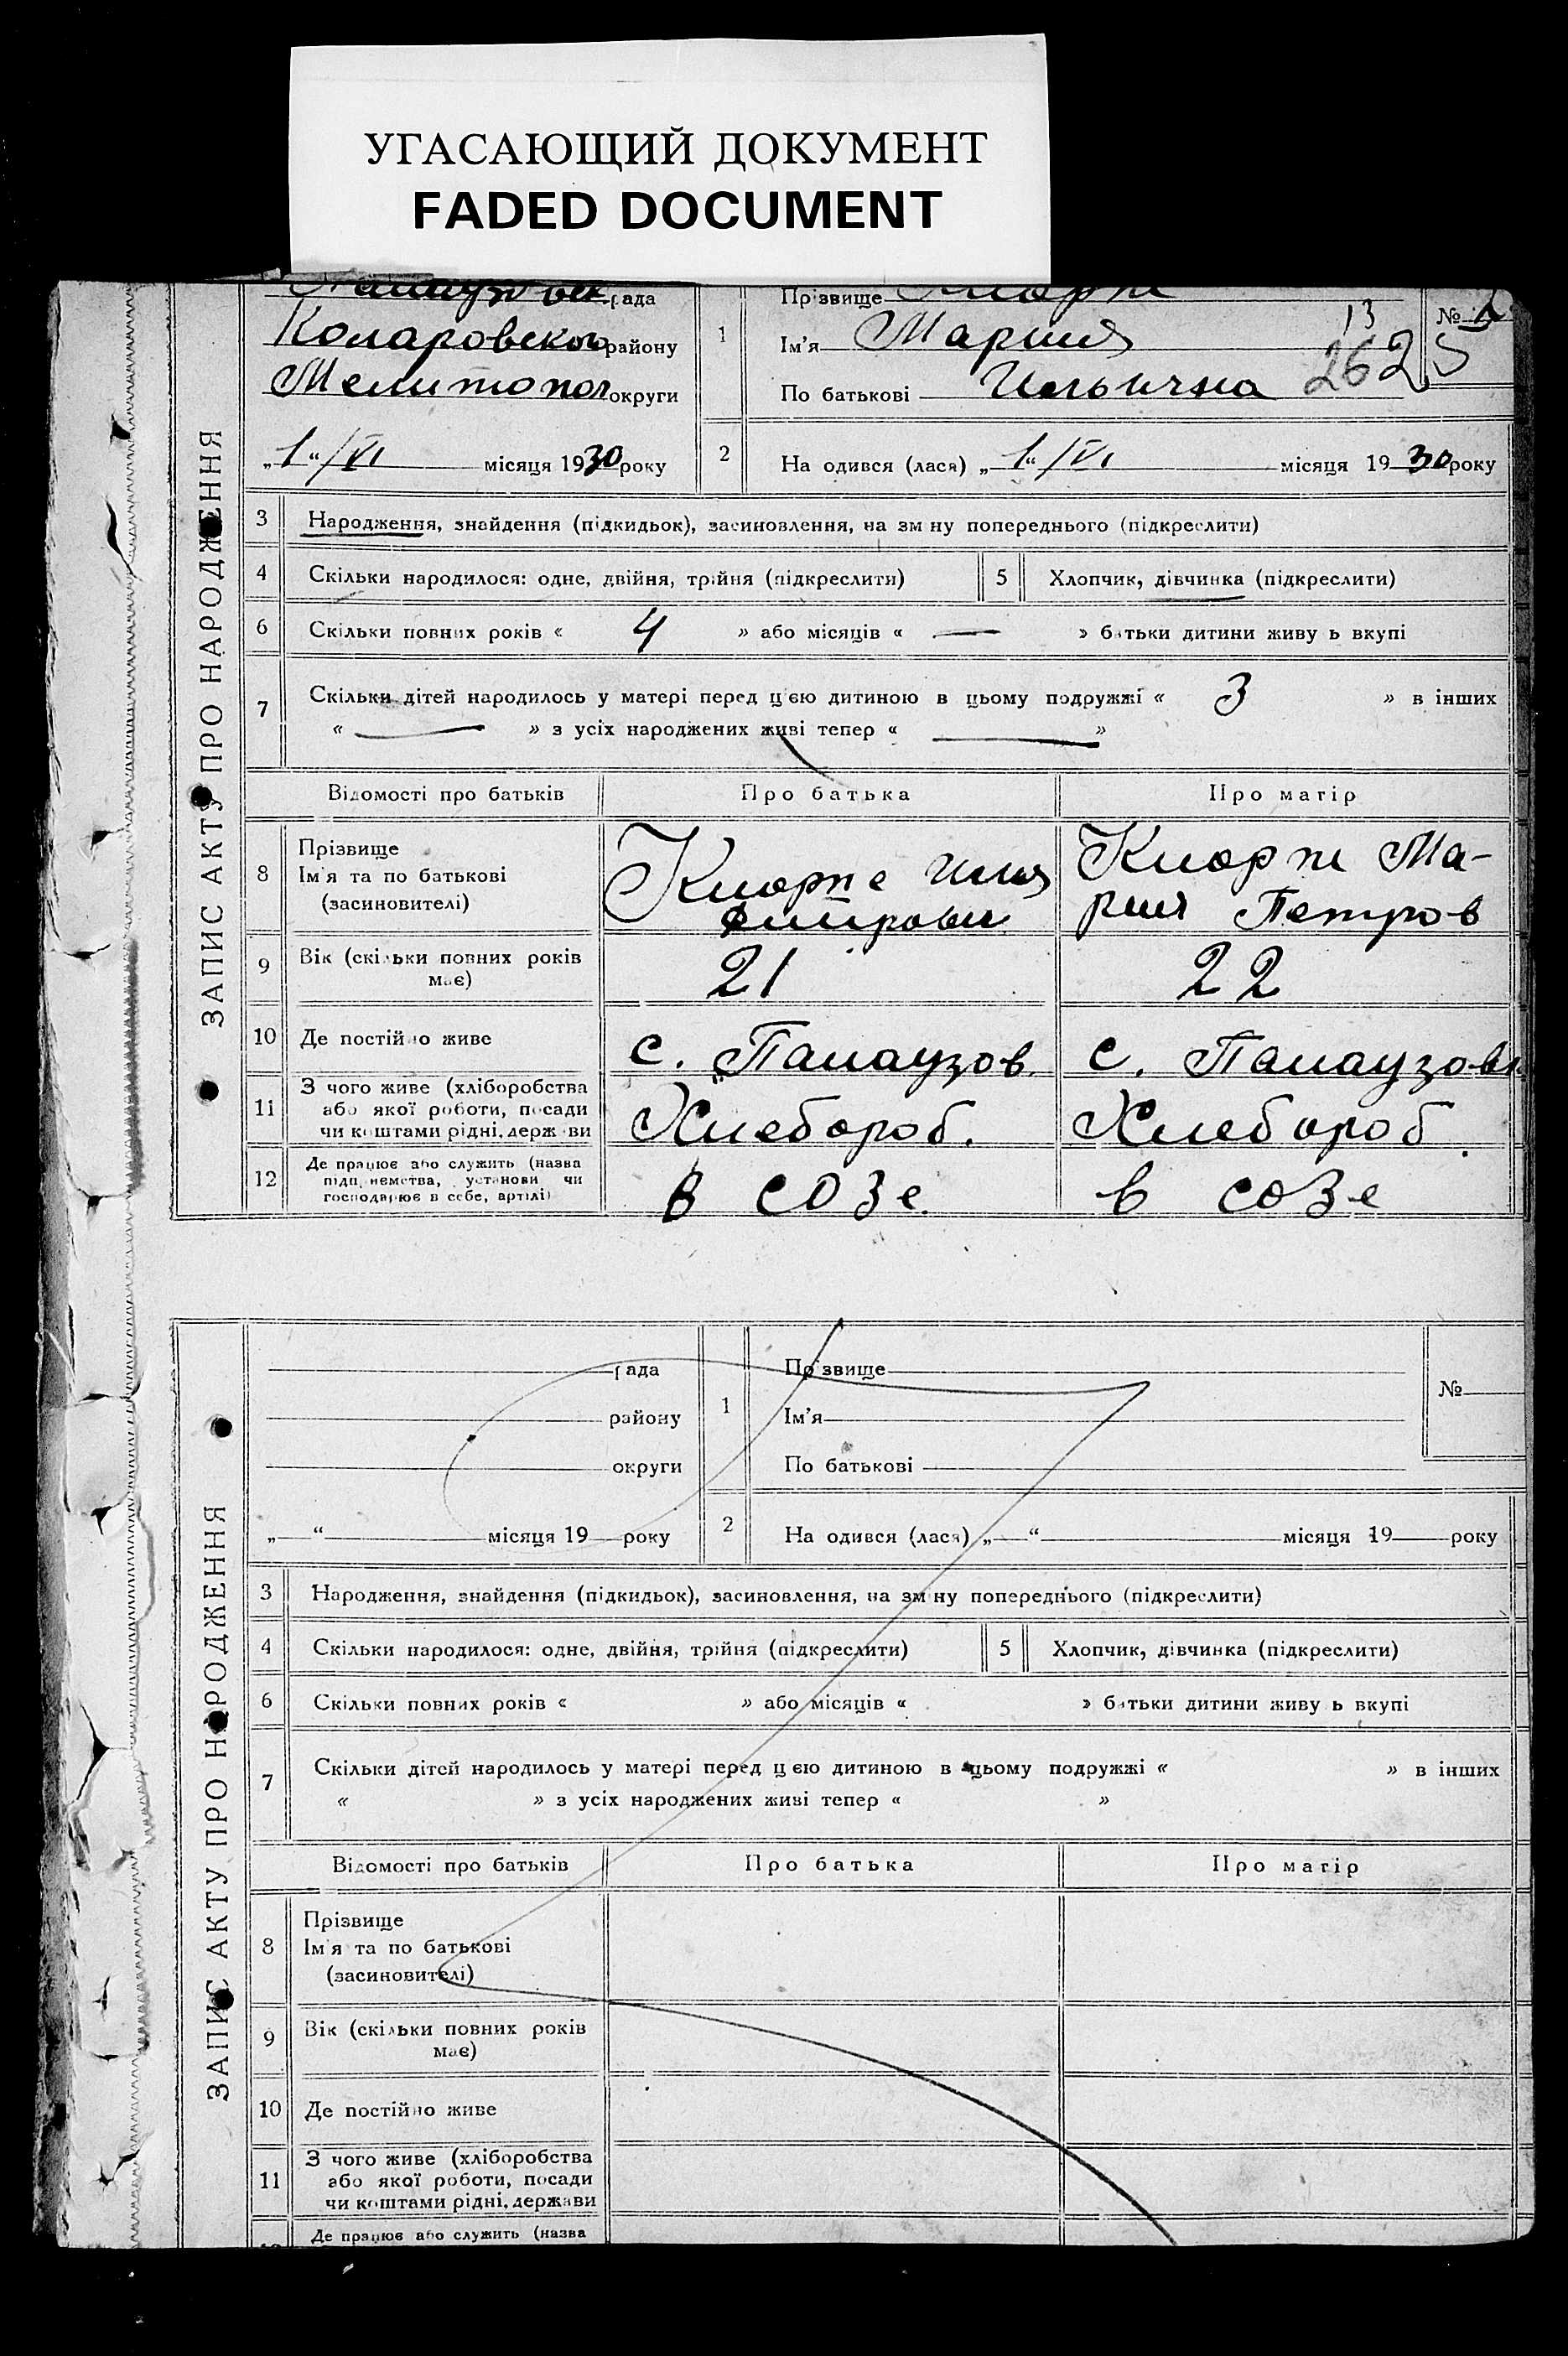 УГАСАЮЩИЙ ДОКУМЕНТ
FADED DOCUMENT
рада
Коларовського району
Мелитопол округи
„1“/VI місяця 1930 року
1
Прізвище
Ім'я Мария
По батькові Ильична
13
2625
№
2
На одився (лася) „1“/VI місяця 1930 року
ЗАПИС АКТУ ПРО НАРОДЖЕННЯ
3 Народження, знайдення (підкидьок), засиновлення, на зм ну попереднього (підкреслити)
4 Скільки народилося: одне, двійня, трійня (підкреслити) 5 Хлопчик, дівчинка (підкреслити)
6 Скільки повних років « 4 » або місяців « — » батьки дитини живу ь вкупі
7 Скільки дітей народилось у матері перед цією дитиною в цьому подружжі « 3 » в інших
« — » з усіх народжених живі тепер « — »
Відомості про батьків Про батька Про матір
8 Прізвище
Ім'я та по батькові
(засиновителі)
Илья
Ма-
рия Петров
9 Вік (скільки повних років
має)
21 22
10 Де постійно живе
с. Палаузов. с. Палаузовк
11 З чого живе (хліборобства
або якої роботи, посади
чи коштами рідні, держави
Хлебороб. Хлебороб
12 Де працює або служить (назва
підприємства, установи чи
господарює в себе, артілі)
в созе. в созе
рада
району
округи
„ “ місяця 19 року
1
Прізвище
Ім'я
По батькові
№
2
На одився (лася) „ “ місяця 19 року
ЗАПИС АКТУ ПРО НАРОДЖЕННЯ
3 Народження, знайдення (підкидьок), засиновлення, на зм ну попереднього (підкреслити)
4 Скільки народилося: одне, двійня, трійня (підкреслити) 5 Хлопчик, дівчинка (підкреслити)
6 Скільки повних років « » або місяців « » батьки дитини живу ь вкупі
7 Скільки дітей народилось у матері перед цією дитиною в цьому подружжі « » в інших
« » з усіх народжених живі тепер « »
Відомості про батьків Про батька Про матір
8 Прізвище
Ім'я та по батькові
(засиновителі)
9 Вік (скільки повних років
має)
10 Де постійно живе
11 З чого живе (хліборобства
або якої роботи, посади
чи коштами рідні, держави
Де працює або служить (назва